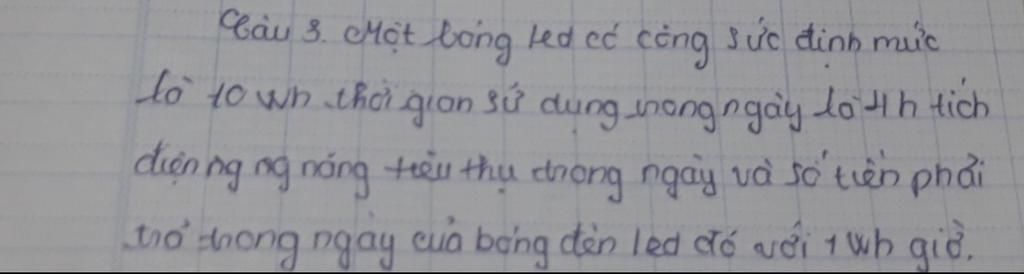 Câu 3. Một bóng led có công sức định mức
là 10 wh thời gian sử dụng trong ngày là 4h tích
điện ng ng năng tiêu thụ trong ngày và số tiền phải
trả trong ngày của bóng đèn led đó với 1 wh giờ.